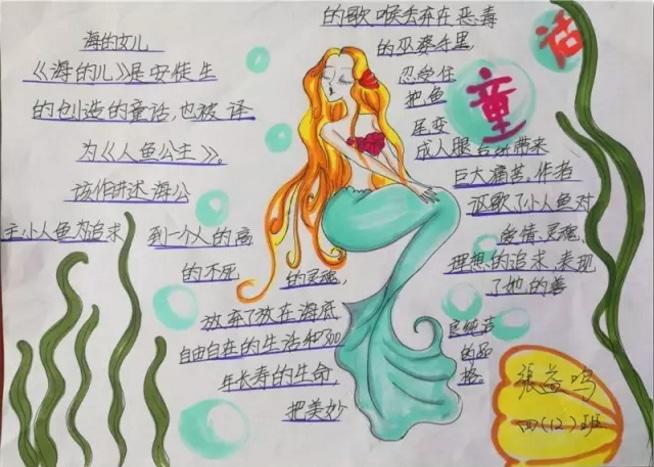 海的女儿
《海的儿》是安徒生
的创造的童话,也被译
为《人鱼公主》。
该作讲述海公
主小人鱼为追求
到一个人的高
的不死
的灵魂,
放弃了放在海底
自由自在的生活和300
年长寿的生命,
把美妙
的歌喉丢弃在恶毒
的巫婆手里,
忍受住
把鱼
尾变
成人腿后所带来
巨大痛苦。作者
讴歌了小人鱼对
爱情、灵魂、
理想的追求,表现
了她的善
良纯洁
的品
格。
童话
張益鸣
四(12)班